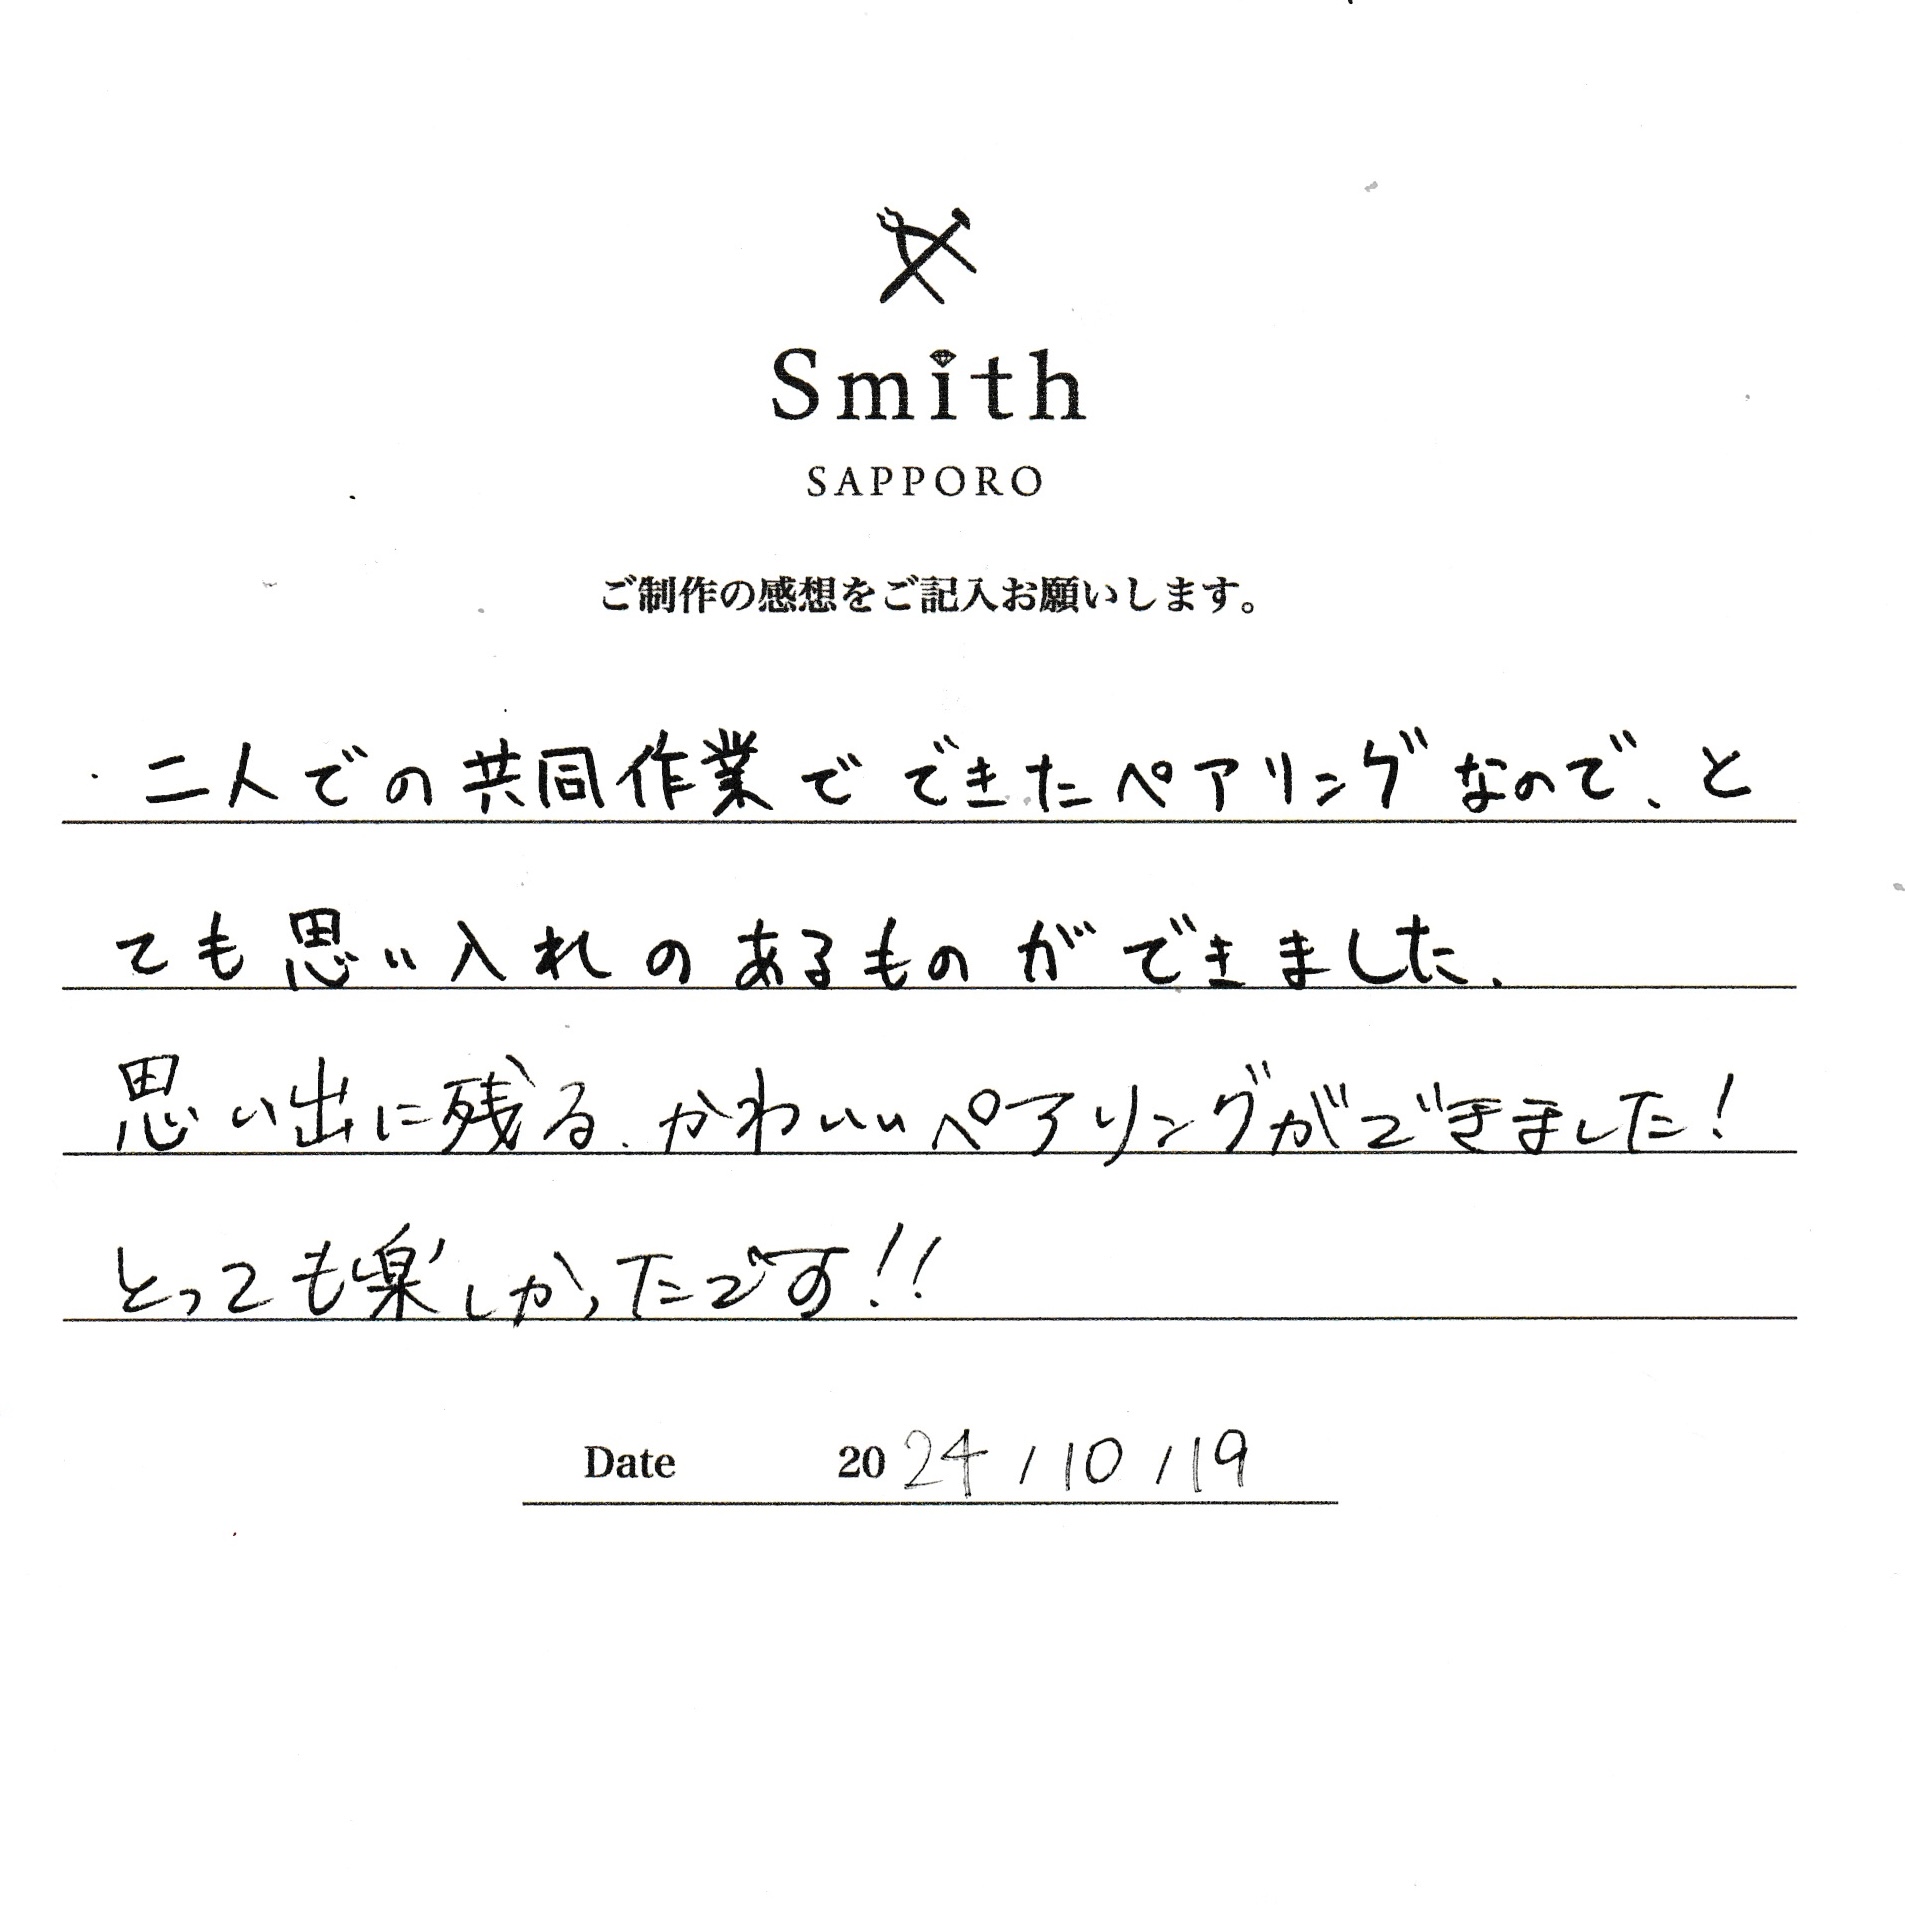 Smith
SAPPORO
ご制作の感想をご記入お願いします。
二人での共同作業でできたペアリングなので、と
ても思い入れのあるものができました、
思い出に残る、かわいいペアリングができました!
とっても楽しかったです!!
Date 2024/10/19